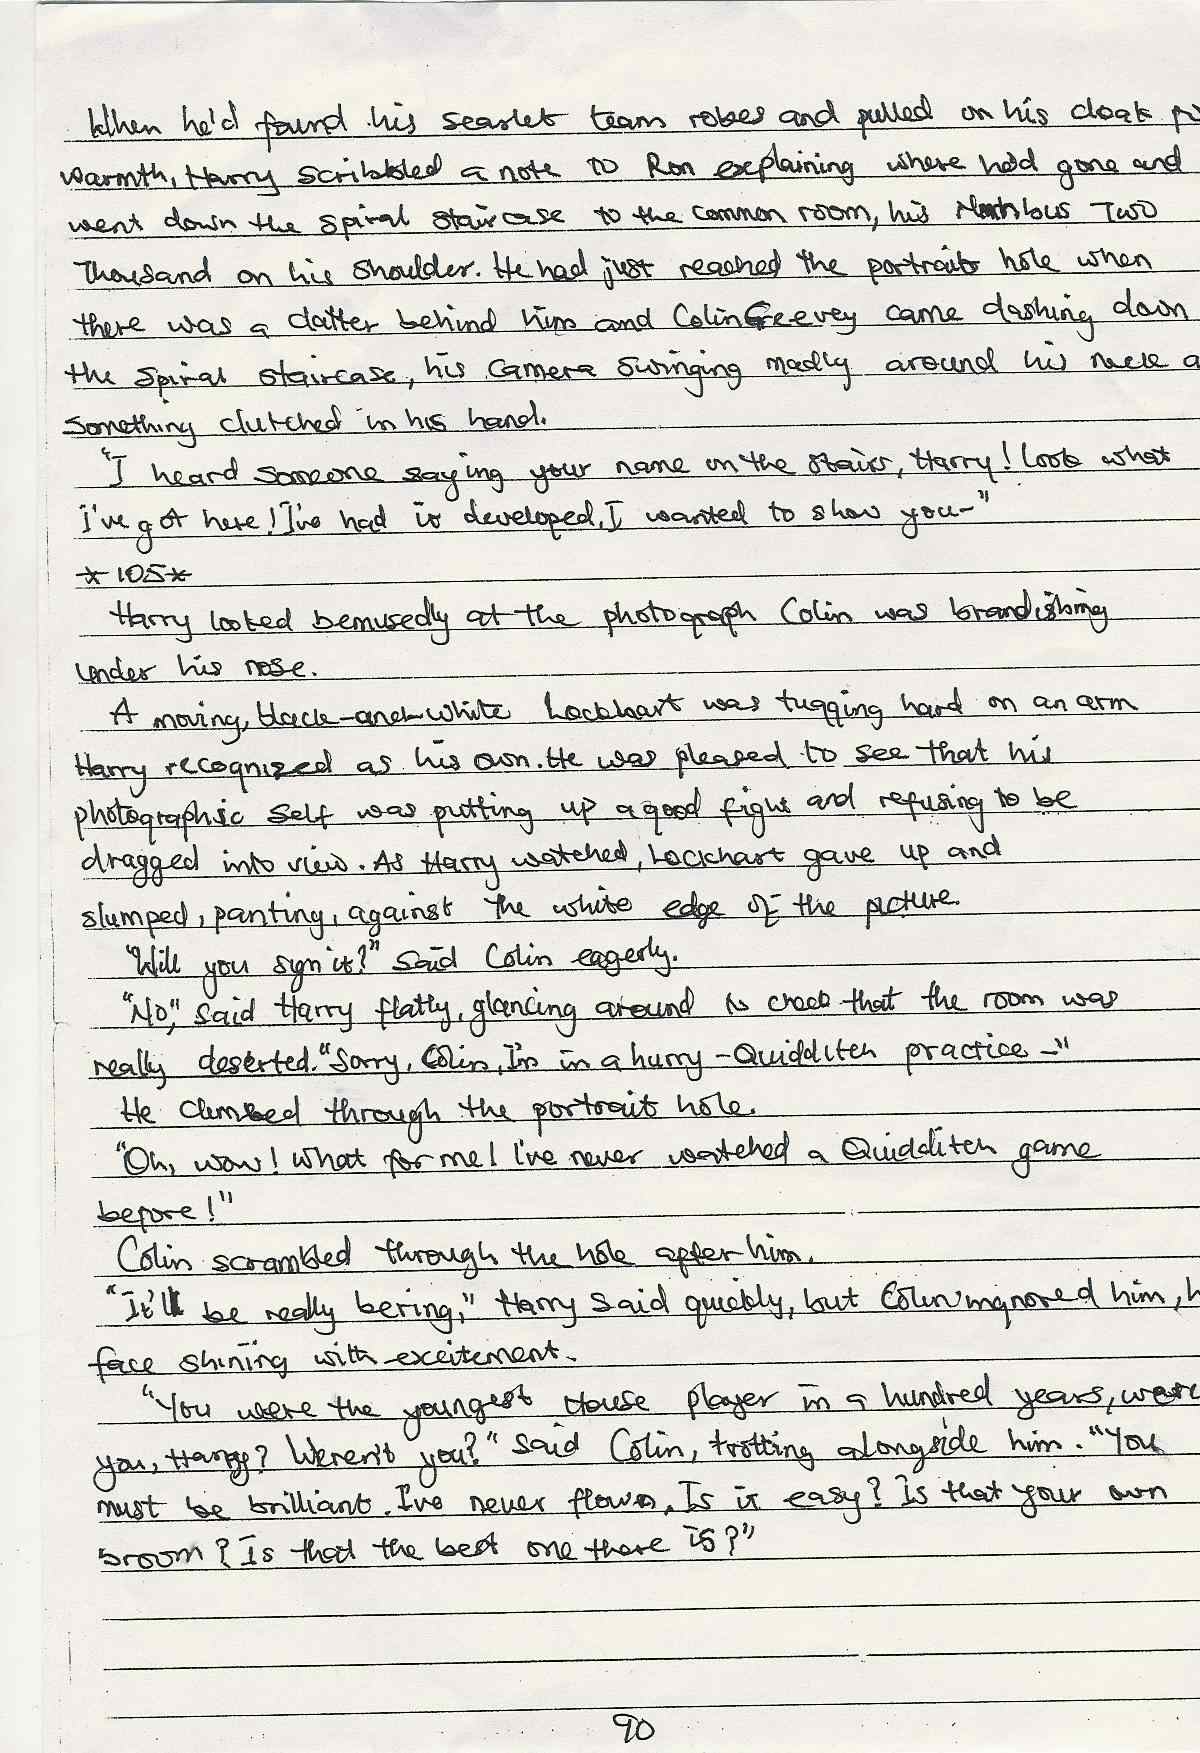 When he'd found his scarlet team robes and pulled on his cloak
warmth, Harry scribbled a note to Ron explaining where he'd gone and
went down the spiral staircase to the common room, his Nimbus Two
Thousand on his shoulder. He had just reached the portrait hole when
there was a clatter behind him and Colin Creevey came dashing down
the spiral staircase, his camera swinging madly around his neck a
something clutched in his hand.
"I heard someone saying your name on the stairs, Harry! Look what
I've got here! I've had it developed, I wanted to show you-"
*105*
Harry looked bemusedly at the photograph Colin was brandishing
under his nose.
A moving, black-and-white Lockhart was tugging hard on an arm
Harry recognized as his own. He was pleased to see that his
photographic self was putting up a good fight and refusing to be
dragged into view. As Harry watched, Lockhart gave up and
slumped, panting, against the white edge of the picture.
"Will you sign it?" said Colin eagerly.
"No," said Harry flatly, glancing around to check that the room was
really deserted. "Sorry, Colin, I'm in a hurry - Quidditch practice -"
He climbed through the portrait hole.
"Oh, wow! What for me! I've never watched a Quidditch game
before!"
Colin scrambled through the hole after him.
"It'll be really bering," Harry said quickly, but Colin ingnored him, h
face shining with excitement.
"You were the youngest House player in a hundred years, were
you, Harry? Weren't you?" said Colin, trotting alongside him. "You
must be brilliant. I've never flown. Is it easy? Is that your own
broom? Is that the best one there is?"
90